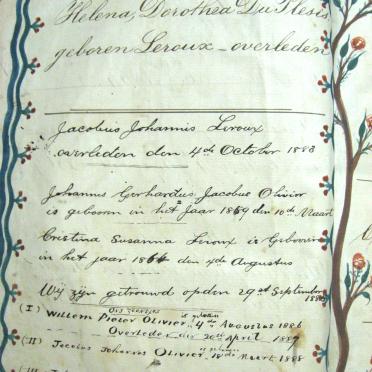 Helena, Dorothea Du Plesis
geboren Leroux - overleden
Jacobus Johannis Leroux
overleden den 4de October 1888
Johannes Gerhardus Jacobus Olivier
is geboren in het Jaar 1859 den 10de Maart
Cristina Susanna Leroux is Gebooren
in het jaar 1864 den 4de Augustus
Wij zijn getrouwd op den 29ste September
(I) Willem Pieter Olivier is geboren 4de Augustus 1886
Overleden 20th April 1889
(II) Jacobus Johannes Olivier is geboren Maart 1888